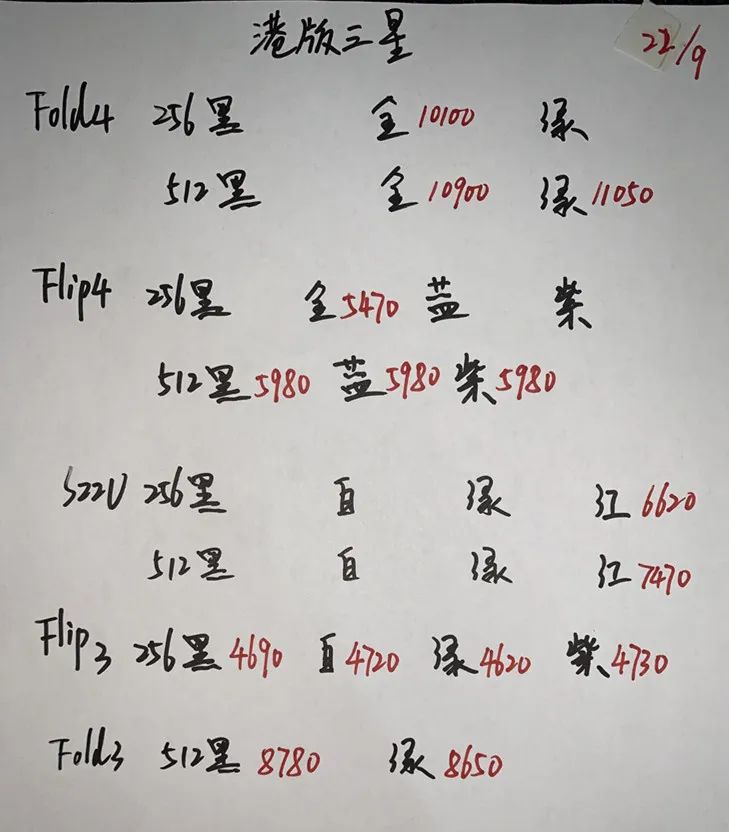 港版三星 22/9
Fold4 256黑 金10100 绿
512黑 金10900 绿11050
Flip4 256黑 金5470 蓝 紫
512黑5980 蓝5980 紫5980
S22U 256黑 白 绿 红6620
512黑 白 绿 红7470
Flip3 256黑4690 白4720 绿4620 紫4730
Fold3 512黑8780 绿8650